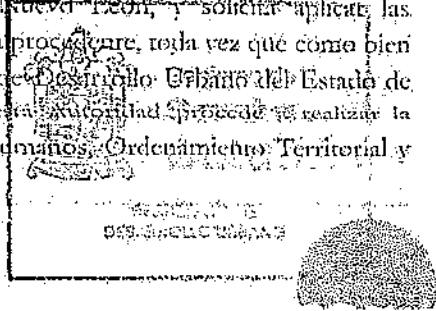 Nuevo León, y solicita aplicar las
procedente, toda vez que como bien
de Desarrollo Urbano del Estado de
esta autoridad procede a realizar la
umanos, Ordenamiento Territorial y
DESARROLLO URBANO